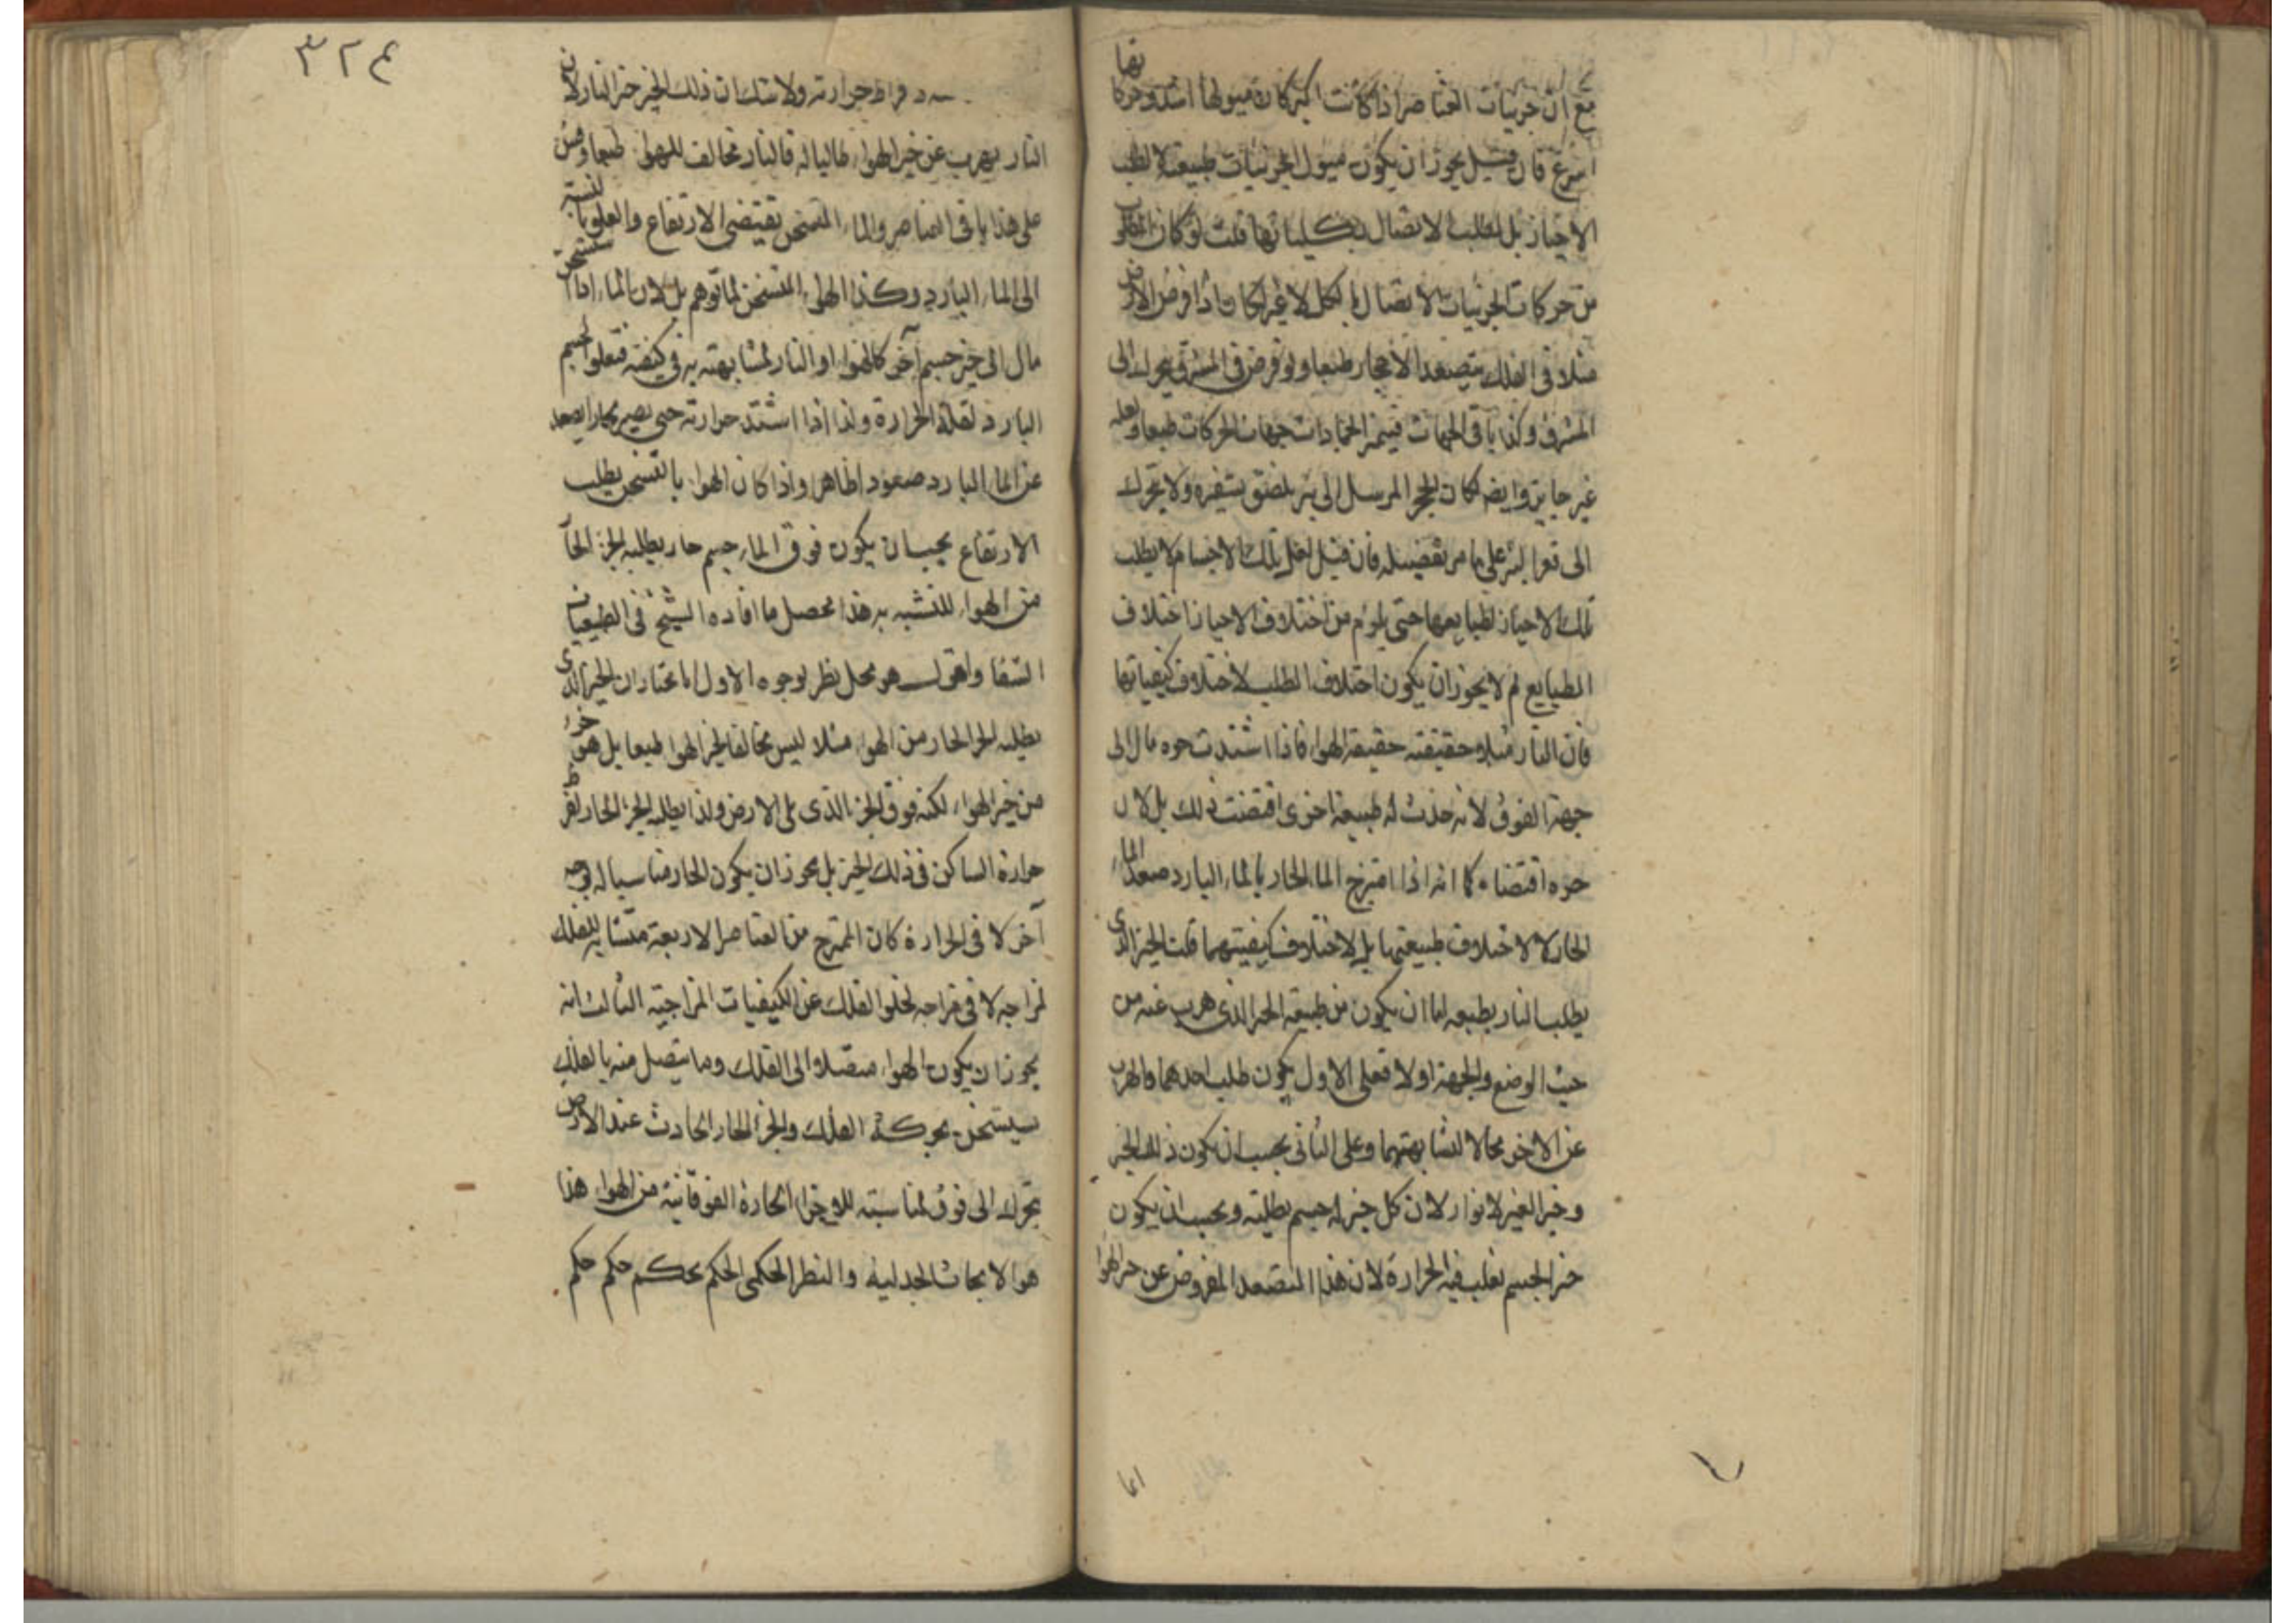 مع ان جزئيات العناصر اذا كانت اكبر كان ميولها اشد وحركاتها
اسرع فان قيل يجوز ان يكون ميول الجزئيات طبيعة لا لطلب
الاحياز بل لطلب الاتصال بكلياتها قلت لو كان المطلوب
من حركات الجزئيات الاتصال بالكل لا غير لكان اذا فرض الارض
مثلا فى الفلك يتصعد الاحجار طبعا ولو فرض فى المشرق يتحرك الى
المشرق وكذا باقى الجهات فتيمز الجمادات جهات الحركات طبعا وله
غير جايز وايضا لكان الحجر المرسل الى بئر يلصق بشفيره ولا يتحرك
الى قعر البئر على ما مر تفضيله فان قيل لعل تلك الاجسام لا يطلب
تلك الاحياز لطبايعها حتى يلزم من اختلاف الاحياز اختلاف
الطبايع لم لا يجوز ان يكون اختلاف الطلب لاختلاف كيفياتها
فان النار مثلا حقيقته حقيقة الهوا فاذا اشتدت حره مال الى
جهة الفوق لا نه حدث له طبيعة اخرى اقتضت ذلك بل لان
حره اقتضاه كما انه اذا امتزج الما الحار بالماء البارد صعد الماء
الحار لا لاختلاف طبيعتهما بل لاختلاف كيفيتهما قلت الحيز الذى
يطلب النار بطبعه اما ان يكون من طبيعة الحيز الذى هرب عنه من
حيث الوضع والجهة اولا فعلى الاول يكون طلب احدهما والهرب
عن الاخر محالا لتشابهتهما وعلى الثانى يجب ان يكون ذلك الحيز
وحيز الغير لا نوار لان كل حيز له جسم يطلبه ويجب ان يكون
حيز الجسم تغلب فيه الحرارة لان هذا المتصعد المفروض عن حيز الهوا
اما
٣٢٤
فراط حرارته ولا شك ان ذلك الحيز حيز النار لان
النار يهرب عن حيز الهواء طالبا له فالنار مخالف للهوا طبعا وقس
على هذا باقى العناصر والماء المتسخن يقتضى الارتفاع والعلو بالنسبة
الى الماء البارد وكذا الهواء المتسخن لما توهم بل لان الماء اذا تسخن
مال الى حيز جسم آخر كالهوا او النار لمشابهته به فى كيفية فتعلوا الجسم
البارد لقلة الحرارة ولذا اذا اشتد حرارته حتى يصير بخارا يصعد
عن الماء البارد صعودا ظاهرا واذا كان الهوا بالتسخن يطلب
الارتفاع يجب ان يكون فوق الماء جسم حار يطلبه الجزء الحار
من الهواء للتشبه به هذا محصل ما افاده الشيخ فى الطبيعيات
الشفا واقول هو محل نظر لوجوه الاول انا نختار ان الحيز الذى
يطلبه الجزء الحار من الهواء مثلا ليس مخالفا لحيز الهوا طبعا بل هو جزء
من حيز الهواء لكنه فوق الجزء الذى يلى الارض ولذا يطلبه الجزء الحار لفرط
حرارة الساكن فى ذلك الحيز بل يجوز ان يكون الحار مناسبا له بوجه
آخر لا فى الحرارة كان الممتزج من العناصر الاربعة متشابه للفلك
لمزاجه لا فى مزاجه لخلو الفلك عن الكيفيات المزاجية الثالث انه
يجوز ان يكون الهواء متصلا الى الفلك وما يتصل منه بالفلك
يستسخن بحركة الفلك والجزء الحار الحادث عند الارض
يتحرك الى فوق لمناسبته للاجزاء الحارة الفوقانية من الهواء هذا
هو الابحاث الجدلية والنظر الحكمى الحكم يحكم حكم حكم